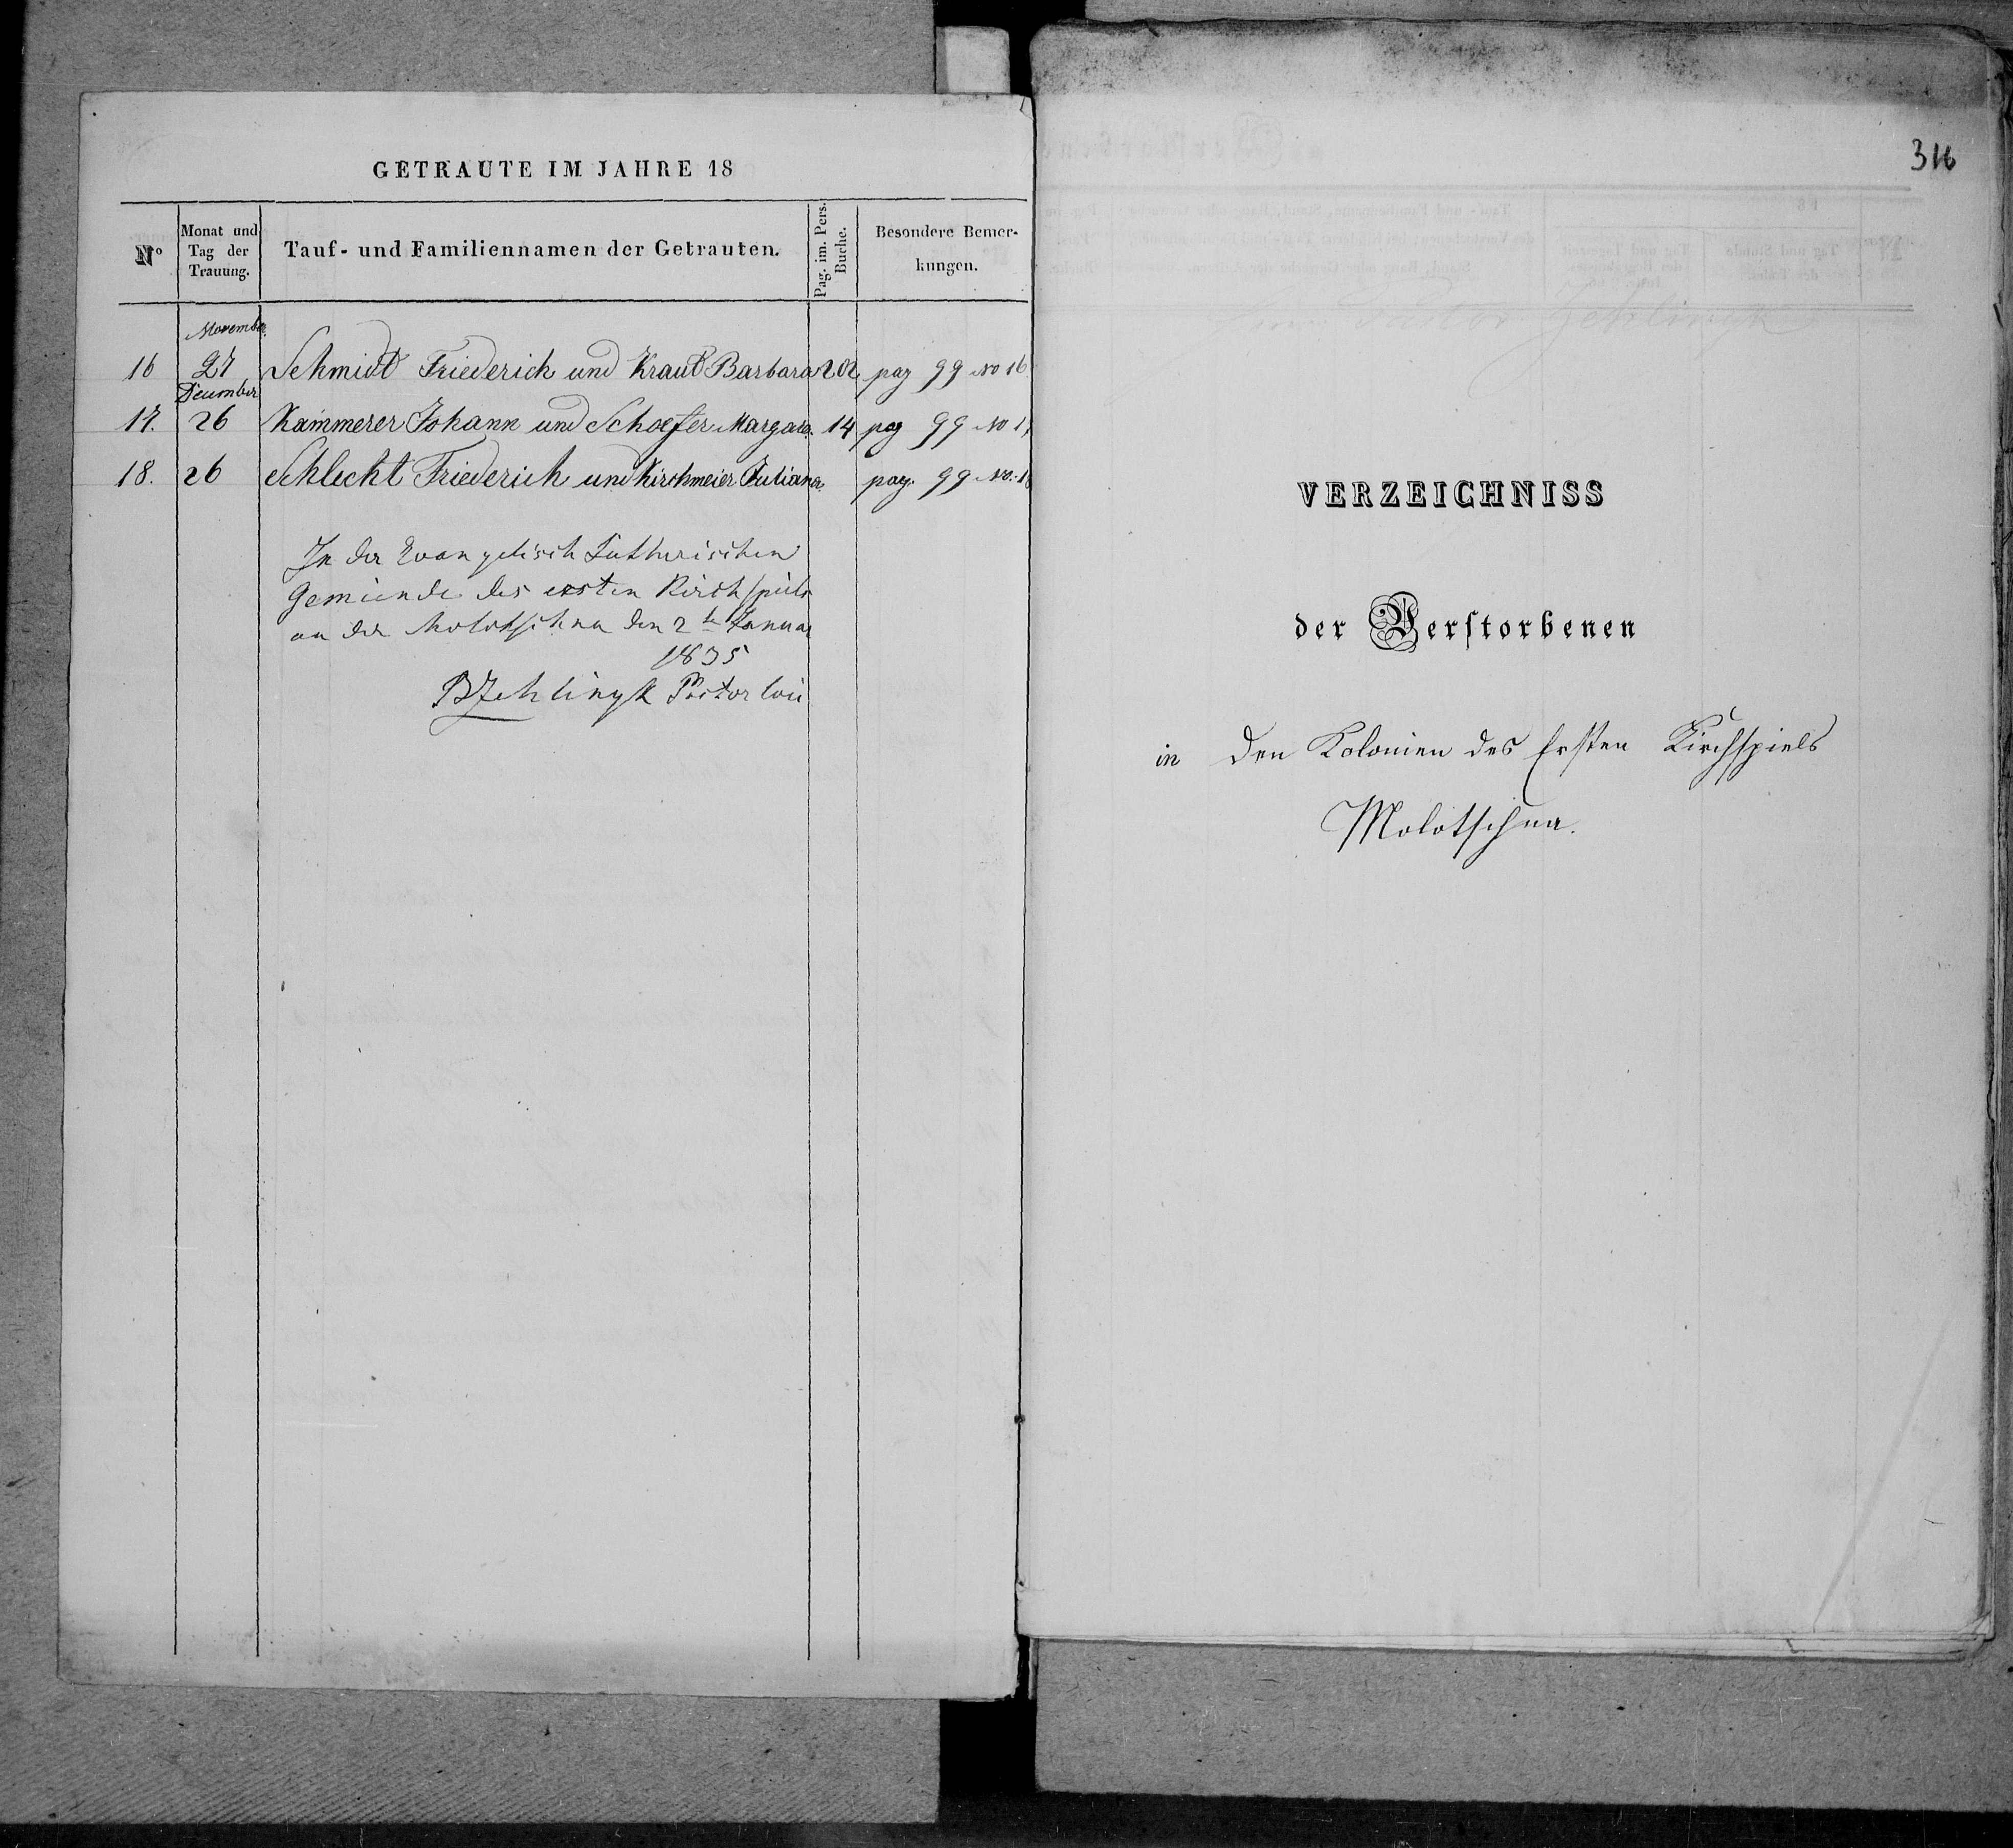 GETRAUTE IM JAHRE 18
No Monat und Tag der Trauung. Tauf- und Familiennamen der Getrauten. Pag. im. Pers. Buche. Besondere Bemerkungen.
November
16 27 Schmidt Friederich und Kraut Barbara 202 pag 99 No 16
December
17. 26 Kämmerer Johann und Schaefer Margare. 14 pag 99 No 17
18. 26 Schlecht Friederich und Kirchmeier Juliana. pag. 99 No. 18
In der Evangelisch Lutherischen
Gemeinde des ersten Kirchspiels
an der Molotschna den 2te Januar
1835
Pastor loci
316
VERZEICHNISS
der Verstorbenen
in den Kolonien des Ersten Kirchspiels
Molotschna.